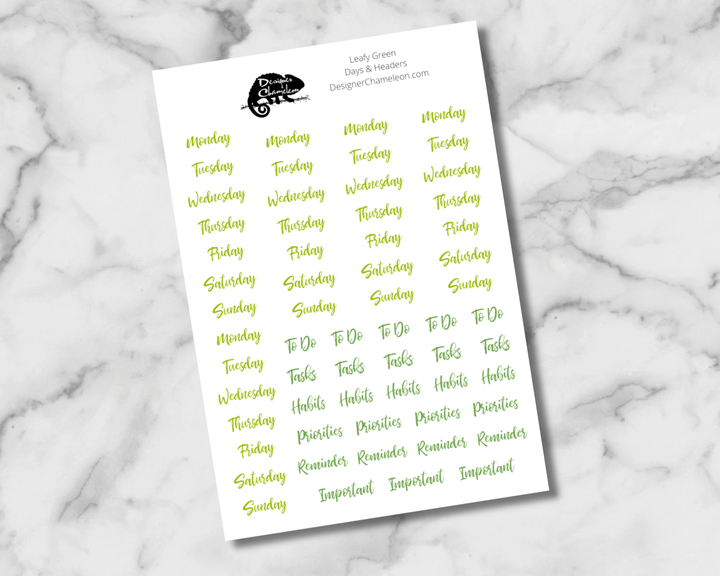 Designer
Chameleon
Leafy Green
Days & Headers
DesignerChameleon.com
Monday Monday Monday Monday
Tuesday Tuesday Tuesday Tuesday
Wednesday Wednesday Wednesday Wednesday
Thursday Thursday Thursday Thursday
Friday Friday Friday Friday
Saturday Saturday Saturday Saturday
Sunday Sunday Sunday Sunday
Monday To Do To Do To Do To Do To Do
Tuesday Tasks Tasks Tasks Tasks Tasks
Wednesday Habits Habits Habits Habits Habits
Thursday Priorities Priorities Priorities Priorities
Friday Reminder Reminder Reminder Reminder
Saturday Important Important Important
Sunday